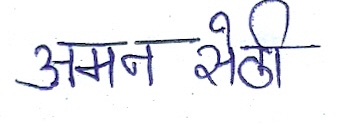 अमन सेठी